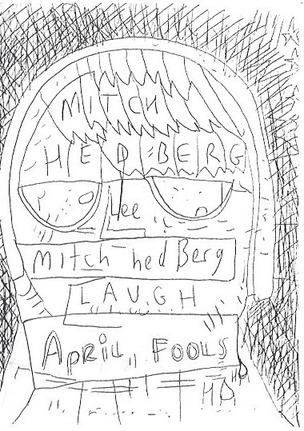 MITCH
HEDBERG
Lee
Mitch hed Berg
LAUGH
APRIL FOOLS